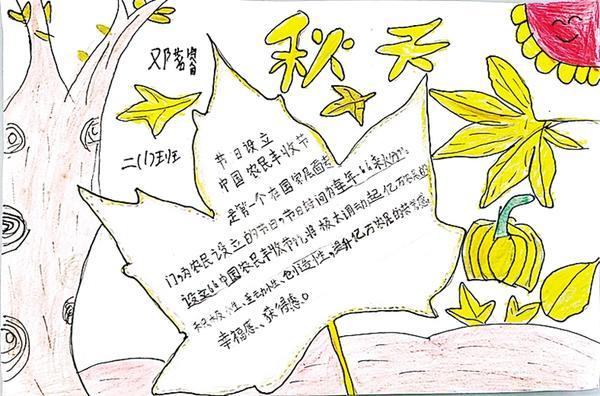 秋天
邓茗睿
二(1)班
节日设立
中国农民丰收节
是第一个在国家层面专
门为农民设立的节日,节日时间为每年“秋分”。
设立“中国农民丰收节”,将极大调动起亿万农民的
积极性、主动性、创造性,提升亿万农民的荣誉感
幸福感、获得感。